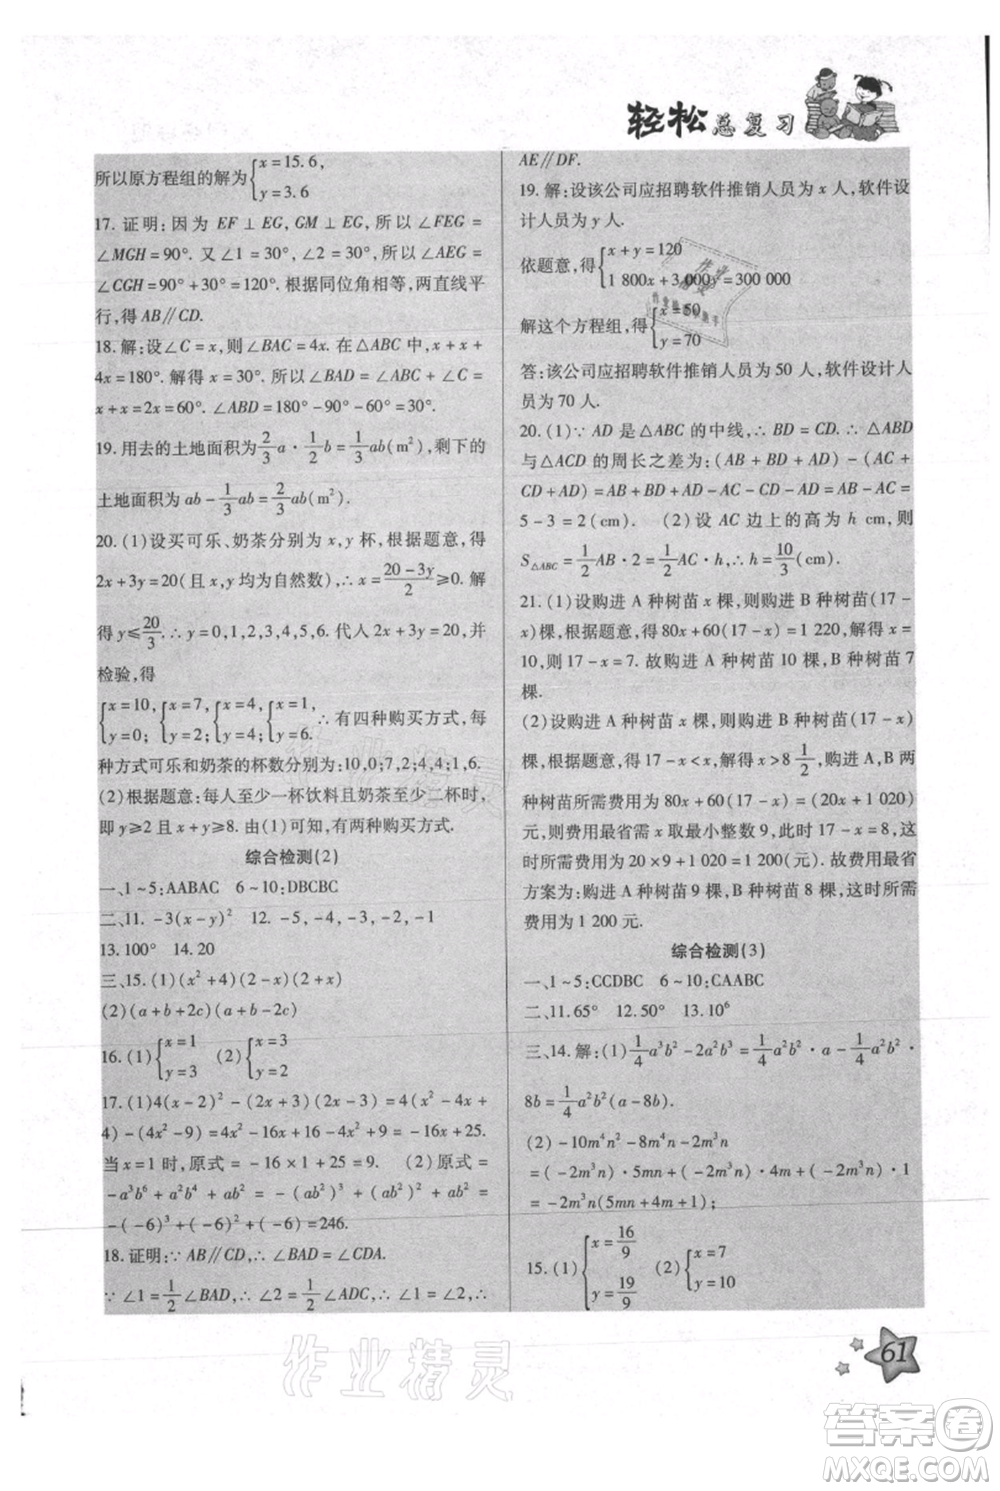 轻松总复习
所以原方程组的解为{x=15.6, y=3.6
17. 证明:因为 EF⊥EG,GM⊥EG,所以∠FEG=
∠MGH=90°. 又∠1=∠2=30°,所以∠AEG=
∠CGH=90°+30°=120°. 根据同位角相等,两直线平
行,得 AB∥CD.
18. 解:设∠C=x,则∠BAC=4x. 在△ABC中,x+x+
4x=180°. 解得 x=30°. 所以∠BAD=∠ABC+∠C=
x+x=2x=60°. ∠ABD=180°-90°-30°=60°.
19. 用去的土地面积为 2/3 a·1/2 b=1/3 ab(m²),剩下的
土地面积为 ab-1/3 ab=2/3 ab(m²).
20. (1)设买可乐、奶茶分别为 x,y 杯,根据题意,得
2x+3y=20(且 x,y 均为自然数),∴x=(20-3y)/2≥0. 解
得 y≤20/3. ∴y=0,1,2,3,4,5,6. 代入 2x+3y=20,并
检验,得
{x=10, y=0; {x=7, y=2; {x=4, y=4; {x=1, y=6. ∴有四种购买方式,每
种方式可乐和奶茶的杯数分别为:10,0;7,2;4,4;1,6.
(2)根据题意:每人至少一杯饮料且奶茶至少二杯时,
即 y≥2 且 x+y≥8. 由(1)可知,有两种购买方式.
综合检测(2)
一、1~5:AABAC 6~10:DBCBC
二、11. -3(x-y)² 12. -5,-4,-3,-2,-1
13.100° 14.20
三、15.(1)(x²+4)(2-x)(2+x)
(2)(a+b+2c)(a+b-2c)
16. (1){x=1 y=3 (2){x=2 y=3
17. (1)4(x-2)²-(2x+3)(2x-3)=4(x²-4x+
4)-(4x²-9)=4x²-16x+16-4x²+9=-16x+25.
当 x=1 时,原式=-16×1+25=9. (2)原式=
-a³b⁶+a²b⁴+ab²=-(ab²)³+(ab²)²+ab²=
-(-6)³+(-6)²+(-6)=246.
18. 证明:∵AB∥CD,∴∠BAD=∠CDA.
∵∠1=1/2∠BAD,∴∠2=1/2∠ADC,∴∠1=∠2,∴
AE∥DF.
19. 解:设该公司应招聘软件推销人员为 x 人,软件设
计人员为 y 人.
依题意,得{x+y=120 1 800x+3 000y=300 000
解这个方程组,得{x=50 y=70
答:该公司应招聘软件推销人员为 50 人,软件设计人员
为 70 人.
20. (1)∵AD 是△ABC 的中线,∴BD=CD. ∴△ABD
与△ACD 的周长之差为:(AB+BD+AD)-(AC+
CD+AD)=AB+BD+AD-AC-CD-AD=AB-AC=
5-3=2(cm). (2)设 AC 边上的高为 h cm,则
S△ABC=1/2 AB·2=1/2 AC·h,∴h=10/3(cm).
21. (1)设购进 A 种树苗 x 棵,则购进 B 种树苗(17-
x)棵,根据题意,得 80x+60(17-x)=1 220,解得 x=
10,所以 17-x=7. 故购进 A 种树苗 10 棵,B 种树苗 7
棵.
(2)设购进 A 种树苗 x 棵,则购进 B 种树苗(17-x)
棵,根据题意,得 17-x<x,解得 x>8 1/2,购进 A、B 两
种树苗所需费用为 80x+60(17-x)=(20x+1 020)
元,则费用最省需 x 取最小整数 9,此时 17-x=8,
这时所需费用为 20×9+1 020=1 200(元). 故费用最省
方案为:购进 A 种树苗 9 棵,B 种树苗 8 棵,这时所需
费用为 1 200 元.
综合检测(3)
一、1~5:CCDBC 6~10:CAABC
二、11.65° 12.50° 13.10⁶
三、14. 解:(1)1/4 a³b²-2a²b³=1/4 a²b²·a-1/4 a²b²·
8b=1/4 a²b²(a-8b).
(2)-10m⁴n²-8m⁴n-2m³n
=(-2m³n)·5mn+(-2m³n)·4m+(-2m³n)·1
=-2m³n(5mn+4m+1);
15. (1){x=16/9 y=19/9 (2){x=7 y=10
61
作业精灵
答案圈
MXQE.COM